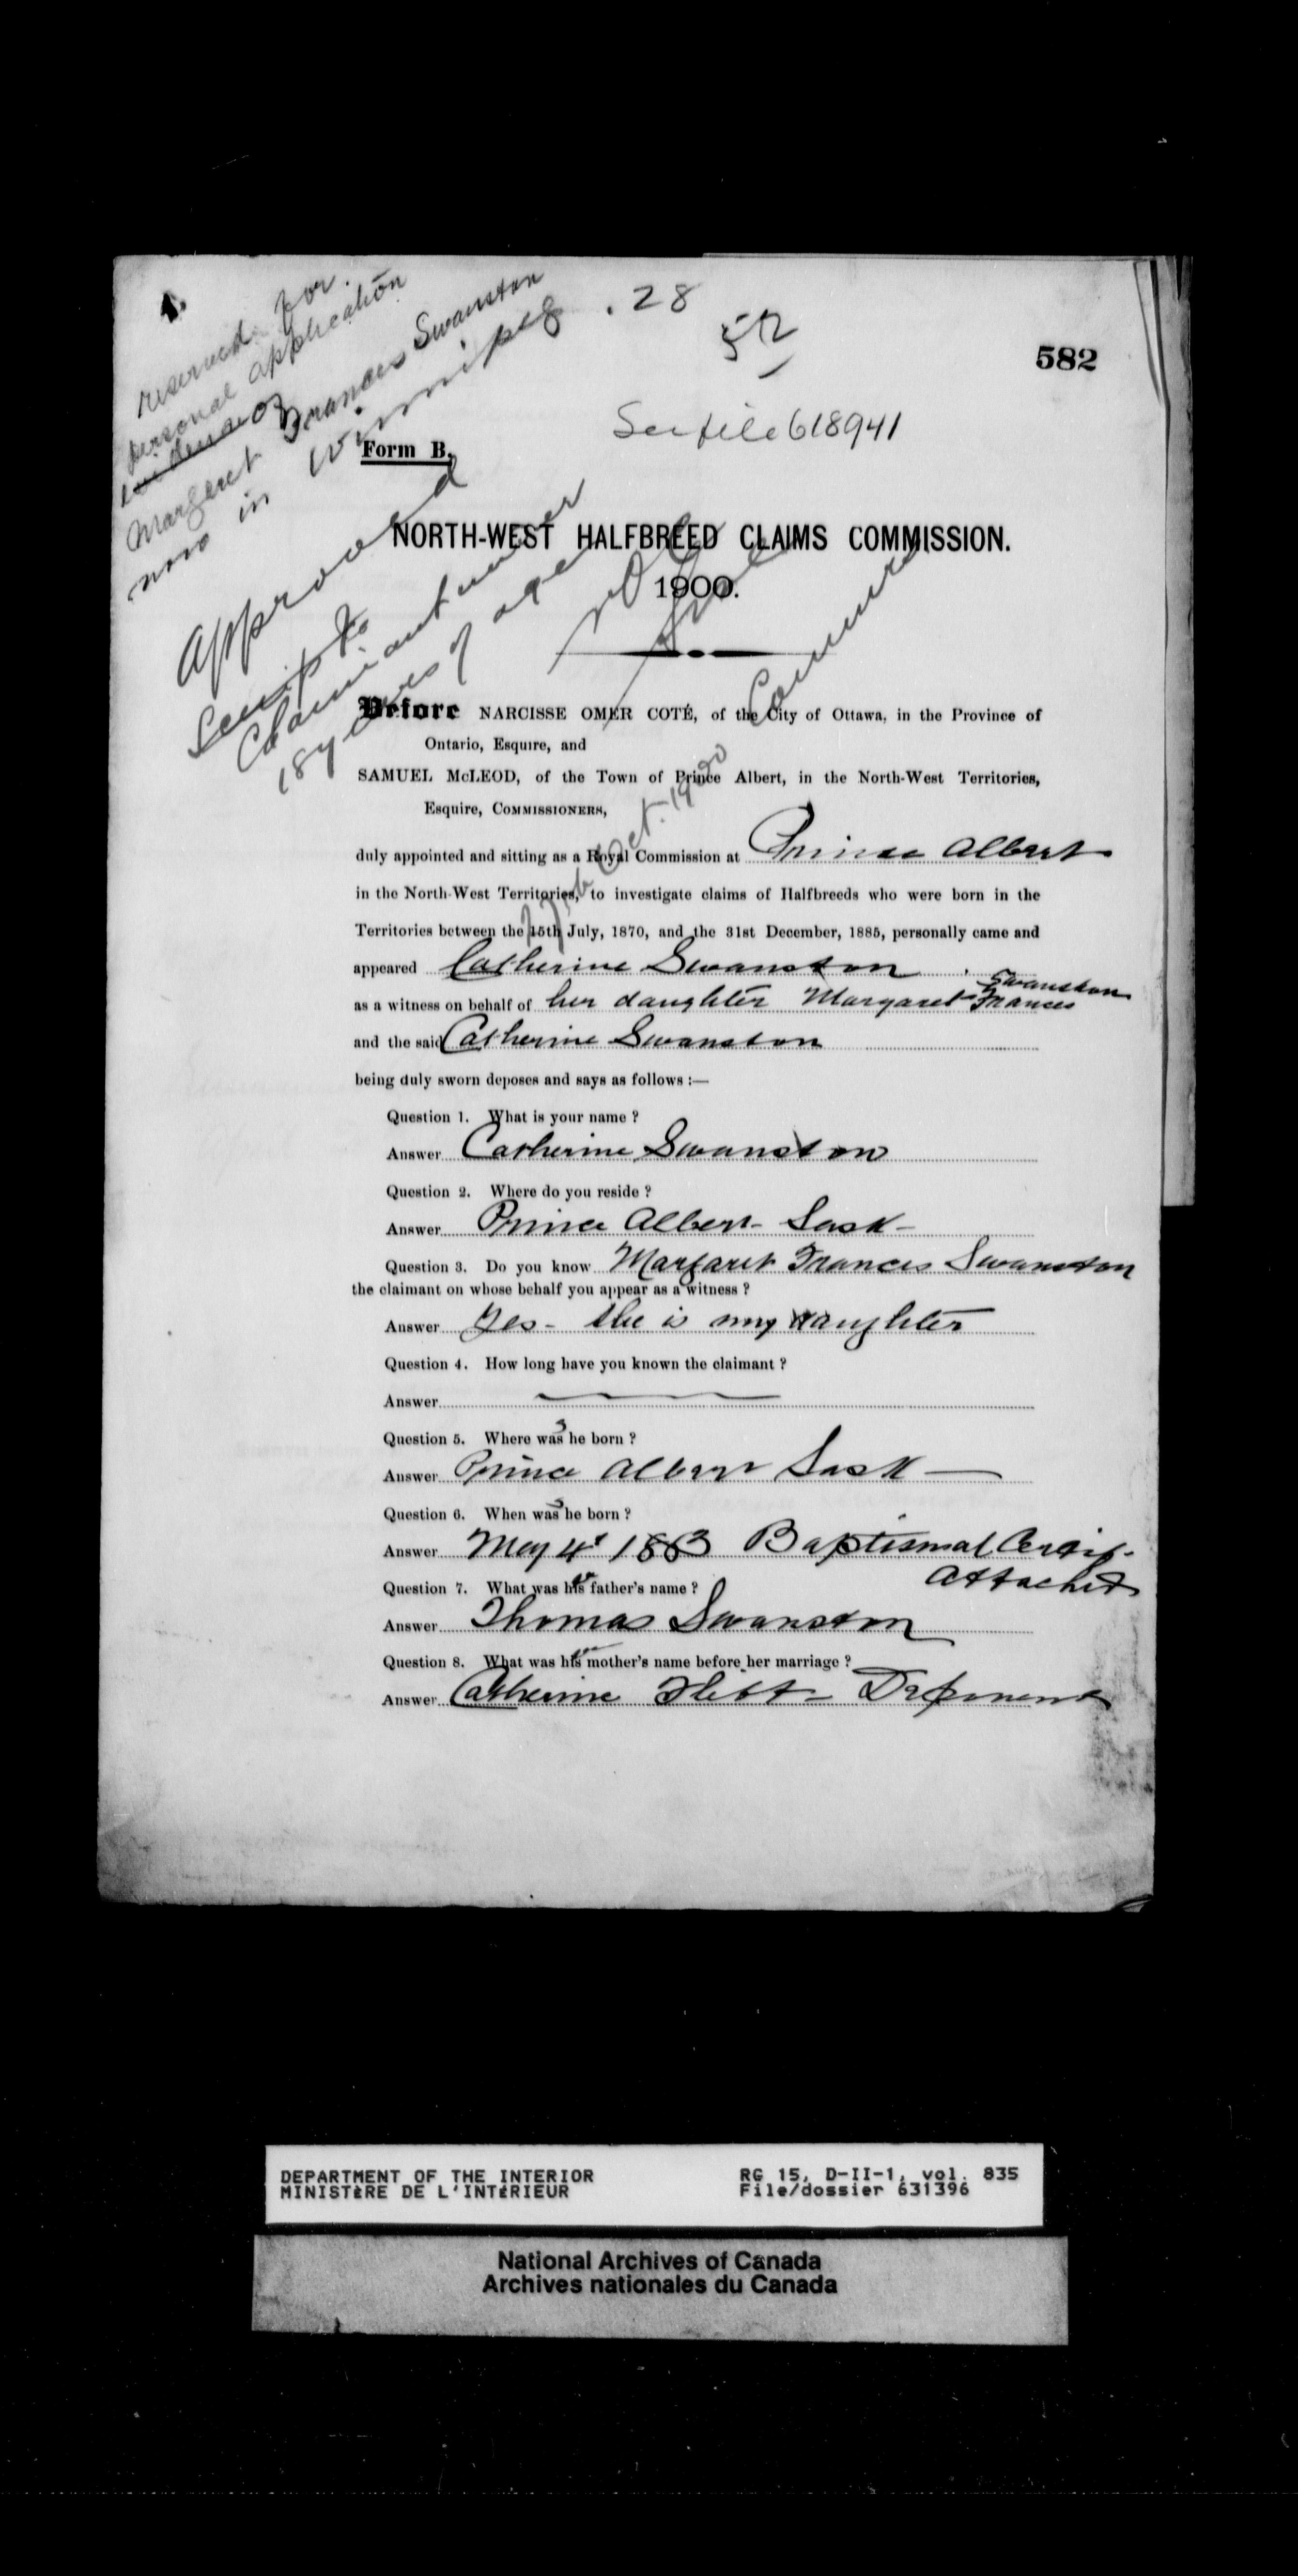 reserved for
personal application
Margaret Frances Swanston
now in Winnipeg
. 28
52
582
See file 618941
Form B.
approved
Scrip to
Claimant under
18 years of age
NORTH-WEST HALFBREED CLAIMS COMMISSION.
1900.
Before NARCISSE OMER COTÉ, of the City of Ottawa, in the Province of
Ontario, Esquire, and
SAMUEL McLEOD, of the Town of Prince Albert, in the North-West Territories,
Esquire, COMMISSIONERS,
Oct. 1900
duly appointed and sitting as a Royal Commission at Prince Albert
in the North-West Territories, to investigate claims of Halfbreeds who were born in the
Territories between the 15th July, 1870, and the 31st December, 1885, personally came and
appeared Catherine Swanston
as a witness on behalf of her daughter Margaret Frances Swanston
and the said Catherine Swanston
being duly sworn deposes and says as follows :—
Question 1. What is your name ?
Answer Catherine Swanston
Question 2. Where do you reside ?
Answer Prince Albert - Sask -
Question 3. Do you know Margaret Frances Swanston
the claimant on whose behalf you appear as a witness ?
Answer Yes - she is my daughter
Question 4. How long have you known the claimant ?
Answer
Question 5. Where was she born ?
Answer Prince Albert Sask —
Question 6. When was she born ?
Answer May 4th 1883 Baptismal Certif.
attached
Question 7. What was her father's name ?
Answer Thomas Swanston
Question 8. What was her mother's name before her marriage ?
Answer Catherine Flett - Deponent
DEPARTMENT OF THE INTERIOR
MINISTÈRE DE L'INTÉRIEUR
RG 15, D-II-1, vol. 835
File/dossier 631396
National Archives of Canada
Archives nationales du Canada